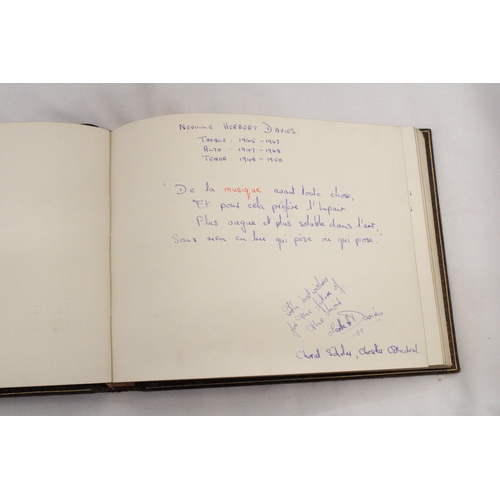 NEVILLE HERBERT DAVIES.
TREBLE : 1945 - 1947
ALTO : 1947 - 1948
TENOR : 1948 - 1950
"De la musique avant toute chose,
Et pour cela préfère l'Impair
Plus vague et plus soluble dans l'air,
Sans rien en lui qui pèse ou qui pose."
With best wishes
for the future of
the
Davies
Choral Scholar, Chester Cathedral.